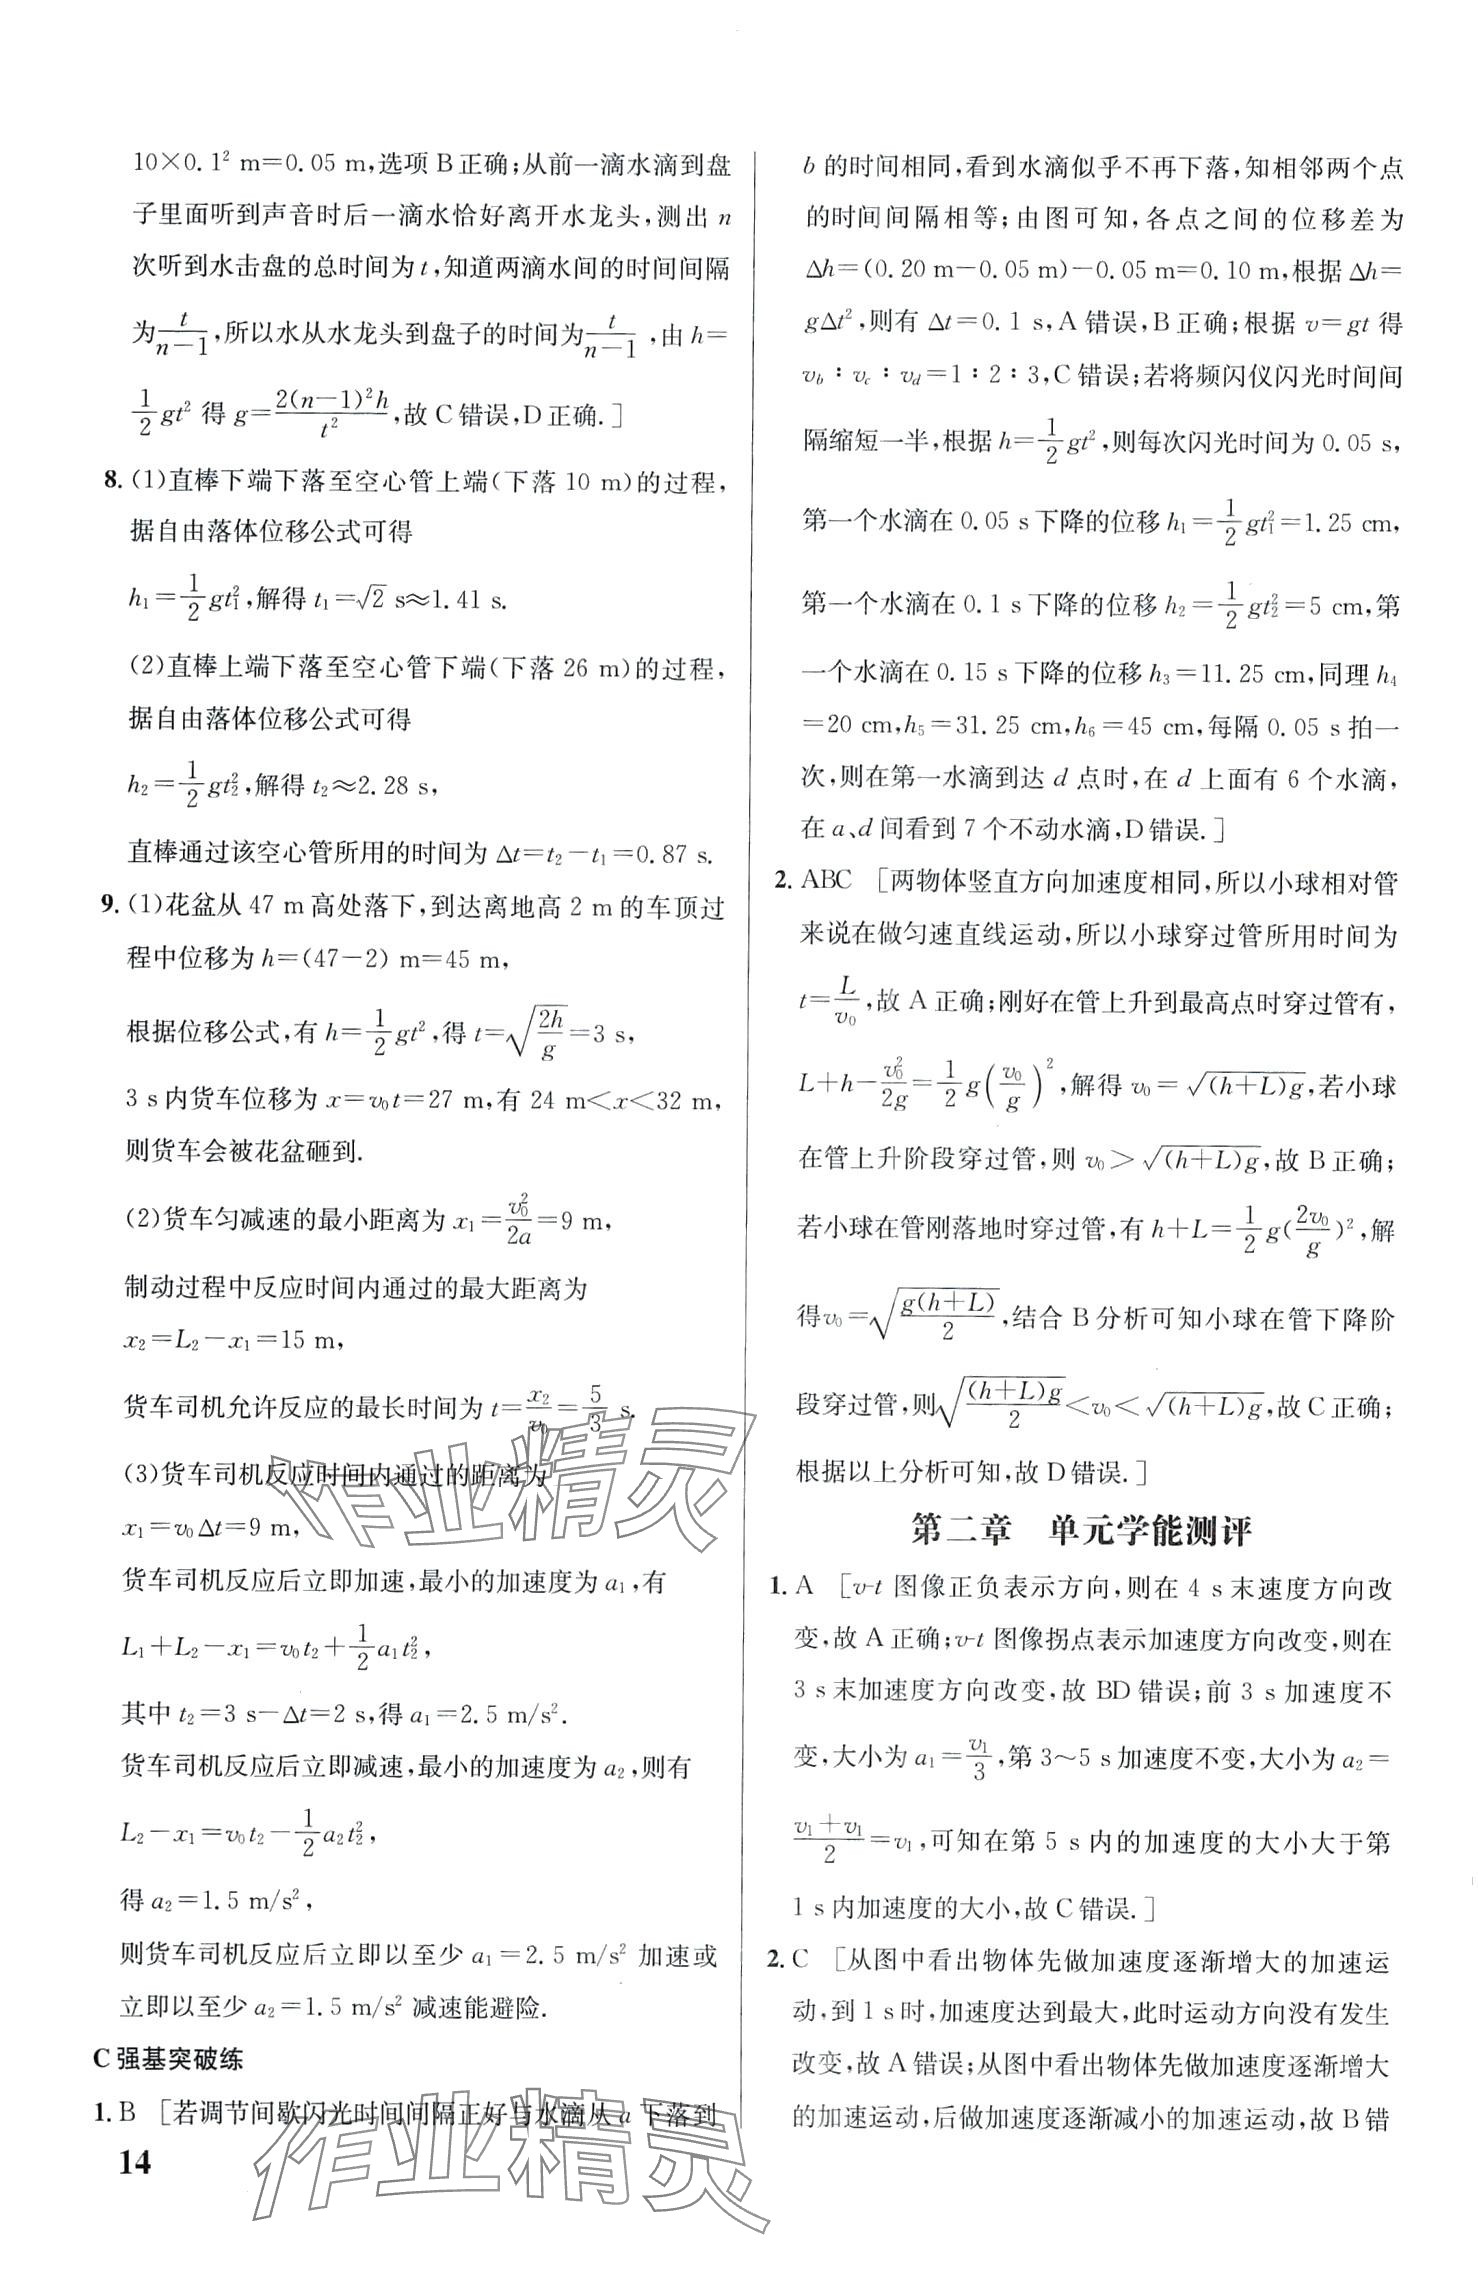 10×0.1² m=0.05 m,选项B正确;从前一滴水滴到盘
子里面听到声音时后一滴水恰好离开水龙头,测出 n
次听到水击盘的总时间为 t,知道两滴水间的时间间隔
为t/(n−1),所以水从水龙头到盘子的时间为t/(n−1),由 h=
1/2 gt² 得 g=2(n−1)²h/t²,故C错误,D正确.]
8. (1)直棒下端下落至空心管上端(下落 10 m)的过程,
据自由落体位移公式可得
h₁=1/2 gt₁²,解得 t₁=√2 s≈1.41 s.
(2)直棒上端下落至空心管下端(下落 26 m)的过程,
据自由落体位移公式可得
h₂=1/2 gt₂²,解得 t₂≈2.28 s,
直棒通过该空心管所用的时间为 Δt=t₂−t₁=0.87 s.
9. (1)花盆从 47 m高处落下,到达离地高 2 m 的车顶过
程中位移为 h=(47−2) m=45 m,
根据位移公式,有 h=1/2 gt²,得 t=√(2h/g)=3 s,
3 s内货车位移为 x=v₀t=27 m,有 24 m<x<32 m,
则货车会被花盆砸到.
(2)货车匀减速的最小距离为 x₁=v₀²/2a=9 m,
制动过程中反应时间内通过的最大距离为
x₂=L₂−x₁=15 m,
货车司机允许反应的最长时间为 t=x₂/v₀=5/3 s.
(3)货车司机反应时间内通过的距离为
x₁=v₀Δt=9 m,
货车司机反应后立即加速,最小的加速度为 a₁,有
L₁+L₂−x₁=v₀t₂+1/2 a₁t₂²,
其中 t₂=3 s−Δt=2 s,得 a₁=2.5 m/s².
货车司机反应后立即减速,最小的加速度为 a₂,则有
L₂−x₁=v₀t₂−1/2 a₂t₂²,
得 a₂=1.5 m/s²,
则货车司机反应后立即以至少 a₁=2.5 m/s² 加速或
立即以至少 a₂=1.5 m/s² 减速能避险.
C 强基突破练
1. B [若调节间歇闪光时间间隔正好与水滴从 a 下落到
14
b 的时间相同,看到水滴似乎不再下落,知相邻两个点
的时间间隔相等;由图可知,各点之间的位移差为
Δh=(0.20 m−0.05 m)−0.05 m=0.10 m,根据 Δh=
gΔt²,则有 Δt=0.1 s,A 错误,B 正确;根据 v=gt 得
v_b∶v_c∶v_d=1∶2∶3,C 错误;若将频闪仪闪光时间间
隔缩短一半,根据 h=1/2 gt²,则每次闪光时间为 0.05 s,
第一个水滴在 0.05 s下降的位移 h₁=1/2 gt₁²=1.25 cm,
第一个水滴在 0.1 s下降的位移 h₂=1/2 gt₂²=5 cm,第
一个水滴在 0.15 s下降的位移 h₃=11.25 cm,同理 h₄
=20 cm,h₅=31.25 cm,h₆=45 cm,每隔 0.05 s 拍一
次,则在第一水滴到达 d 点时,在 d 上面有 6 个水滴,
在 a、d 间看到 7 个不动水滴,D错误.]
2. ABC [两物体竖直方向加速度相同,所以小球相对管
来说在做匀速直线运动,所以小球穿过管所用时间为
t=L/v₀,故 A 正确;刚好在管上升到最高点时穿过管有,
L+h−v₀²/2g=1/2 g(v₀/g)²,解得 v₀=√((h+L)g),若小球
在管上升阶段穿过管,则 v₀>√((h+L)g),故 B 正确;
若小球在管刚落地时穿过管,有 h+L=1/2 g(2v₀/g)²,解
得v₀=√(g(h+L)/2),结合 B 分析可知小球在管下降阶
段穿过管,则√((h+L)g/2)<v₀<√((h+L)g),故C正确;
根据以上分析可知,故D错误.]
第二章 单元学能测评
1. A [v-t 图像正负表示方向,则在 4 s 末速度方向改
变,故 A 正确;v-t 图像拐点表示加速度方向改变,则在
3 s末加速度方向改变,故 BD 错误;前 3 s 加速度不
变,大小为 a₁=v₁/3,第 3~5 s加速度不变,大小为 a₂=
(v₁+v₁)/2=v₁,可知在第 5 s 内的加速度的大小大于第
1 s内加速度的大小,故C错误.]
2. C [从图中看出物体先做加速度逐渐增大的加速运
动,到 1 s时,加速度达到最大,此时运动方向没有发生
改变,故 A 错误;从图中看出物体先做加速度逐渐增大
的加速运动,后做加速度逐渐减小的加速运动,故 B 错
作业精灵
作业精灵